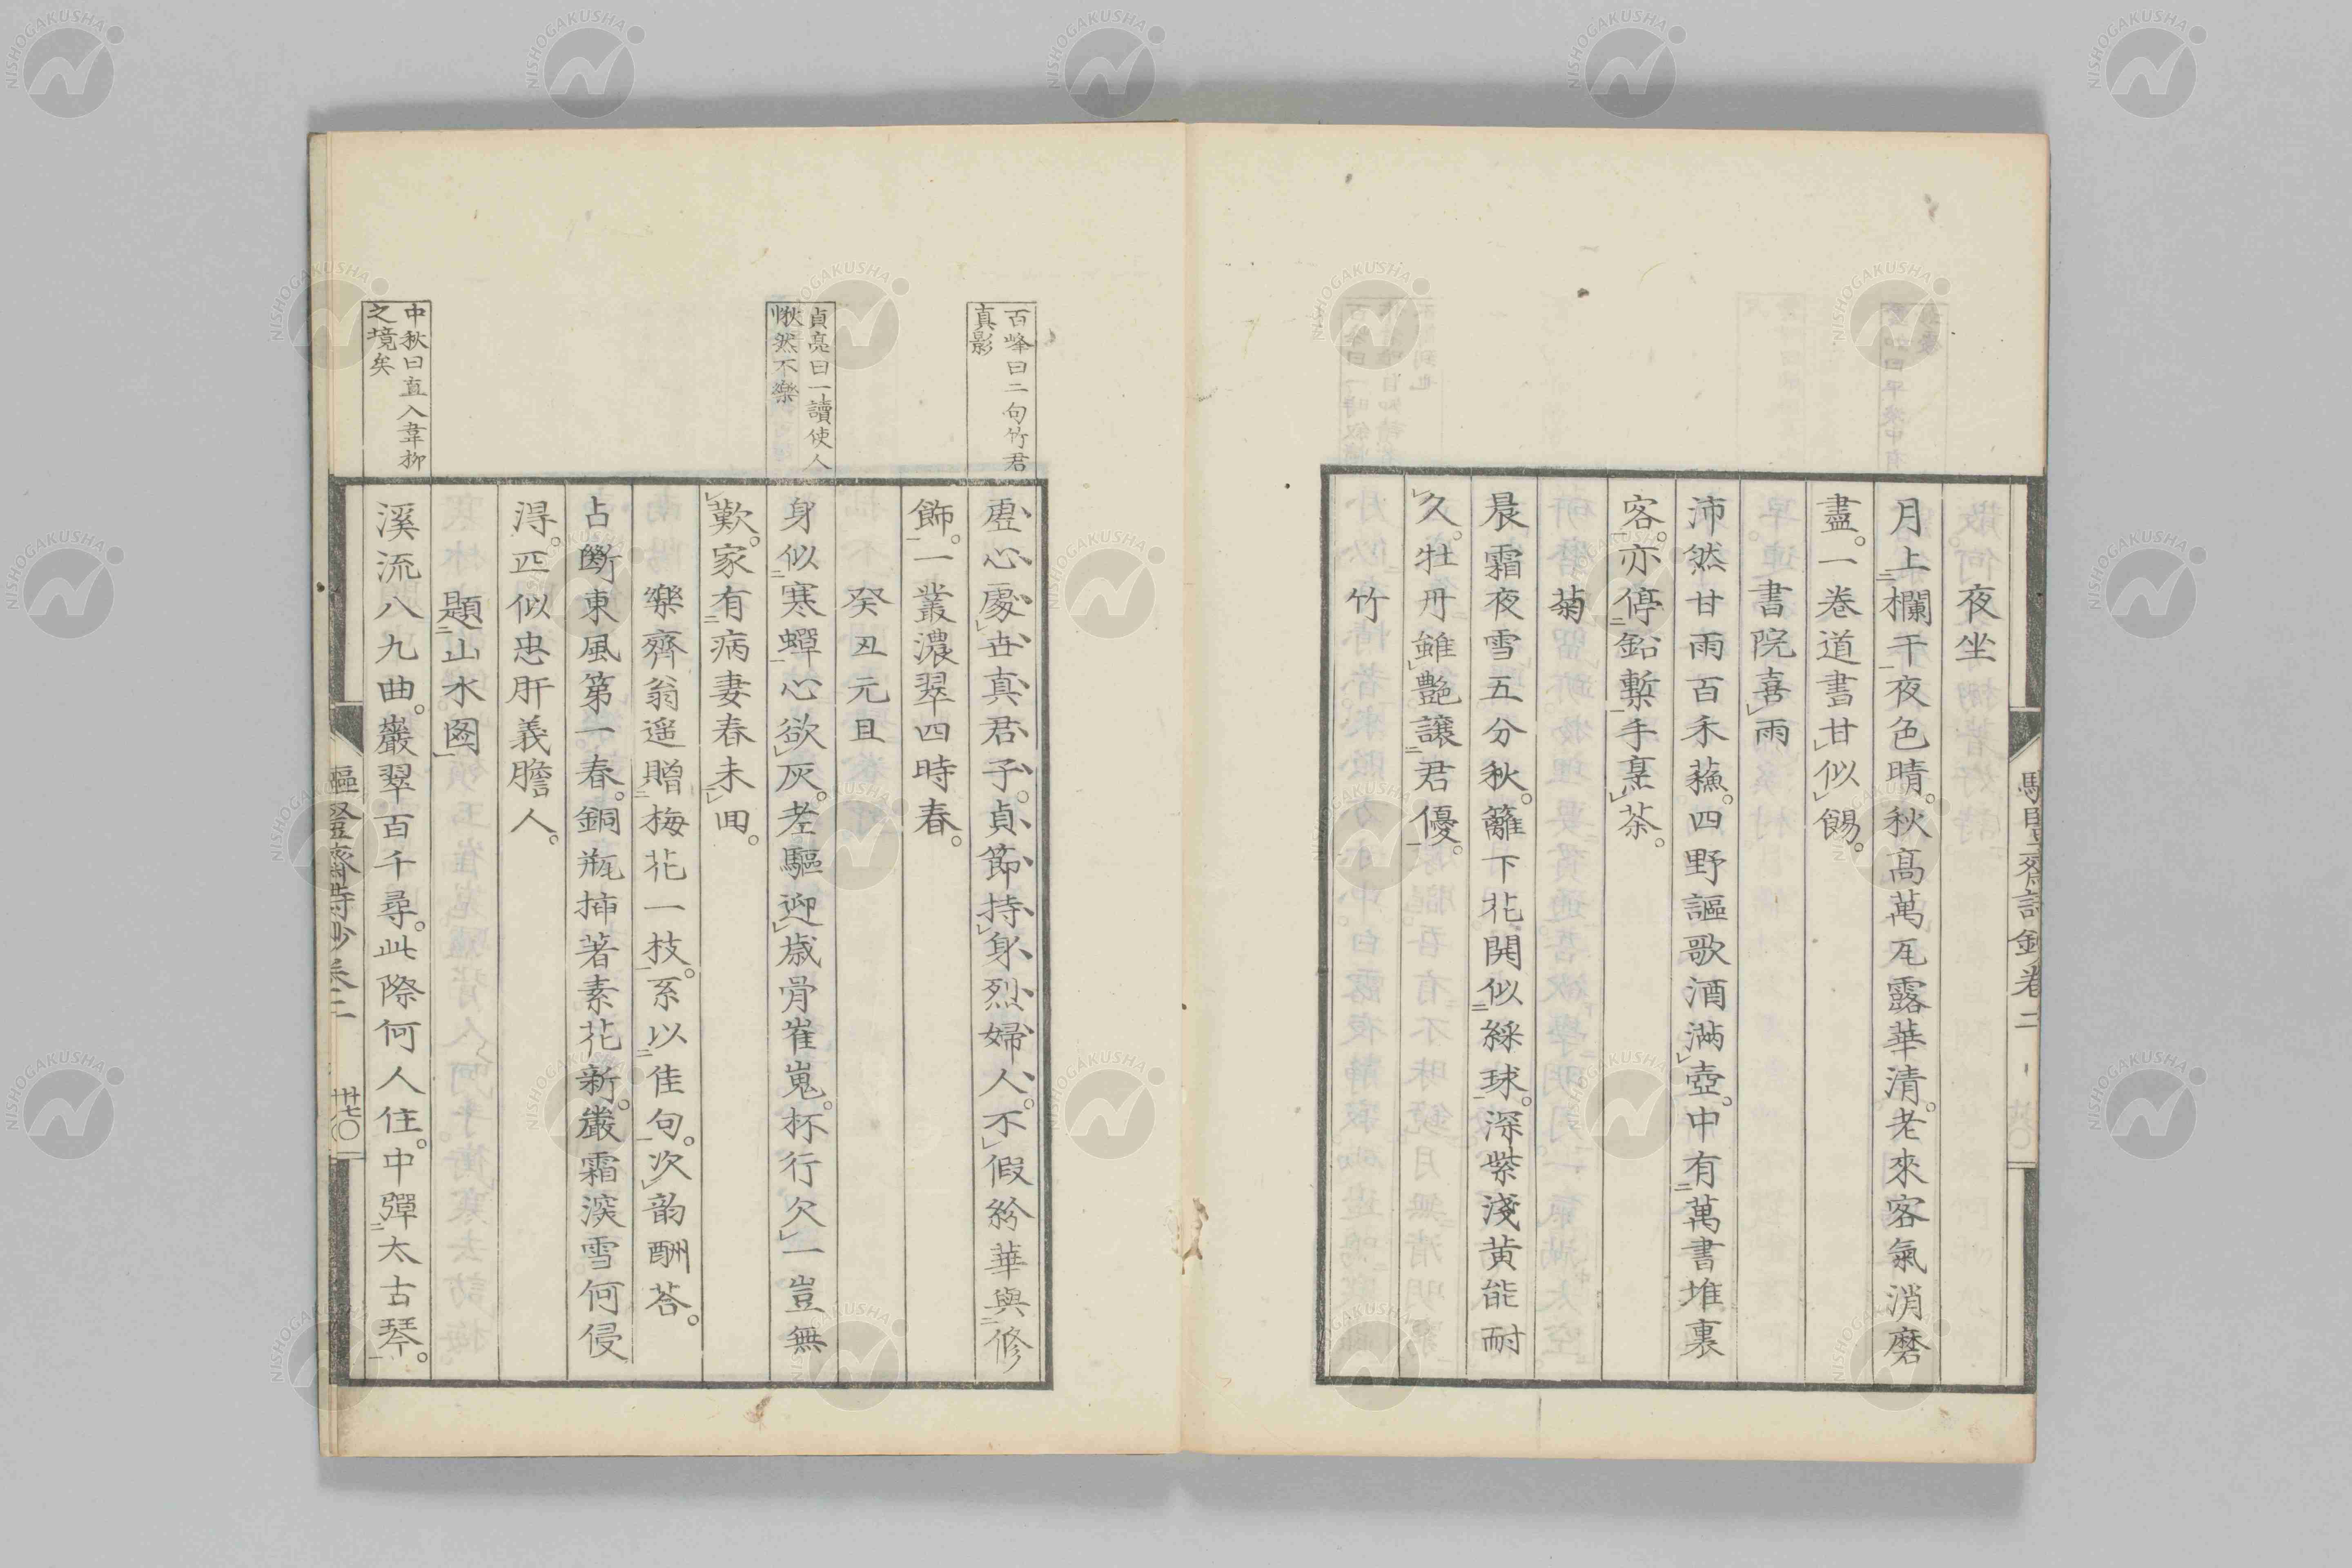 夜坐
月上欄干夜色晴。秋高萬瓦露華清。老來客氣消磨
盡。一卷道書甘似餳。
書院喜雨
沛然甘雨百禾蘓。四野謳歌酒滿壺。中有萬書堆裏
客。亦停鉛槧手烹茶。
菊
晨霜夜雪五分秋。籬下花開似綵球。深紫淺黄能耐
久。牡丹雖艶讓君優。
竹
百峰曰二句竹君
真影
虛心處世真君子。貞節持身烈婦人。不假紛華與修
飾。一叢濃翠四時春。
癸丑元旦
貞亮曰一讀使人
愀然不樂
身似寒蟬心欲灰。老驅迎歳骨崔嵬。杯行欠一豈無
歎。家有病妻春未回。
樂齊翁遥贈梅花一枝。系以佳句。次韵酬荅。
占斷東風第一春。銅瓶挿著素花新。嚴霜深雪何侵
得。匹似忠肝義膽人。
題山水圖
中秋曰直入韋栁
之境矣
溪流八九曲。巖翠百千尋。此際何人住。中彈太古琴。
齋詩鈔卷二
卅七
NISHOGAKUSHA